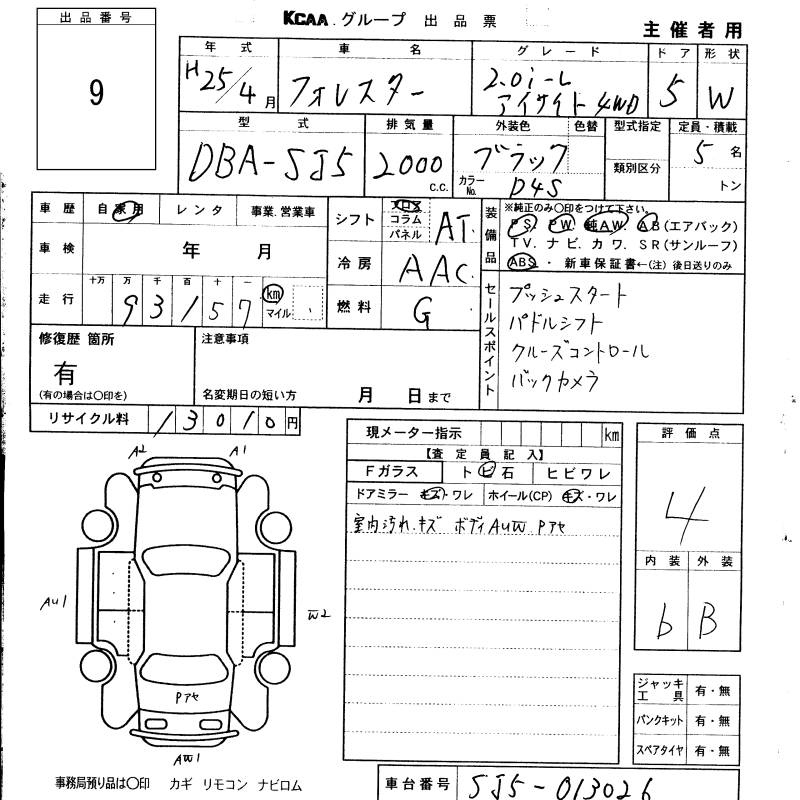 出品番号
9
KCAA グループ 出品票
主催者用
年式 車名 グレード ドア 形状
H25/4月 フォレスター 2.0i-L アイサイト 4WD 5 W
型式 排気量 外装色 色替 型式指定 定員・積載
DBA-SJ5 2000 c.c. ブラック 類別区分 5名
カラーNo. D4S トン
車歴 自家用 レンタ 事業.営業車
シフト フロア コラム パネル AT
装備品 ※純正のみ〇印をつけて下さい。
PS. PW. 純AW. AB(エアバック)
TV. ナビ. カワ. SR(サンルーフ)
ABS ・ 新車保証書←(注) 後日送りのみ
車検 年 月
冷房 AAC
走行 十万 万 千 百 十 一
93157 km マイル
燃料 G
セールスポイント
プッシュスタート
パドルシフト
クルーズコントロール
バックカメラ
修復歴 箇所
有
(有の場合は〇印を)
注意事項
名変期日の短い方 月 日まで
リサイクル料 13010円
現メーター指示 km
【査定員記入】
Fガラス トビ石 ヒビワレ
ドアミラー キズ・ワレ ホイール(CP) キズ・ワレ
室内汚れ.キズ ボディAUW Pアセ
評価点
4
内装 外装
b B
A2 A1
AU1
W2
Pアセ
AW1
ジャッキ工具 有・無
パンクキット 有・無
スペアタイヤ 有・無
事務局預り品は〇印 カギ リモコン ナビロム
車台番号 SJ5-013026